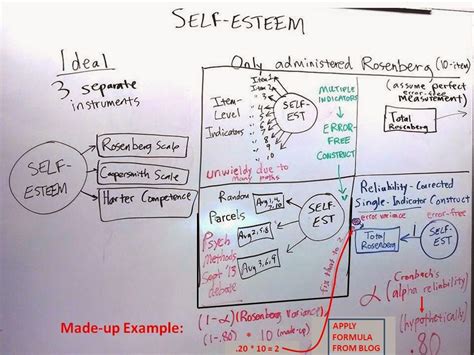 SELF-ESTEEM
Ideal
3 separate
instruments
SELF-
ESTEEM
Rosenberg Scale
Coopersmith Scale
Harter Competence
Only administered Rosenberg (10-item)
Item-
Level
Indicators
Item 1
Item 2
" 3
4
5
6
7
8
9
10
SELF-
EST
unwieldy due to
many paths
MULTIPLE
INDICATORS
→
ERROR-
FREE
CONSTRUCT
(assume perfect
error-free
measurement)
Total
Rosenberg
Random
Parcels
Psych
Methods
Sept '13
debate
Avg 1,4,
7,10
Avg 2,5,8
Avg 3,6,9
SELF-
EST
fix this to 2
Reliability-Corrected
Single-Indicator Construct
error variance
error-free
Total
Rosenberg
1
SELF-
EST
Cronbach's
α (alpha reliability)
(hypothetically)
.80
Made-up Example:
(1-α)(Rosenberg Variance)
(1-.80) * 10 (made-up)
.20 * 10 = 2
APPLY
FORMULA
FROM BLOG